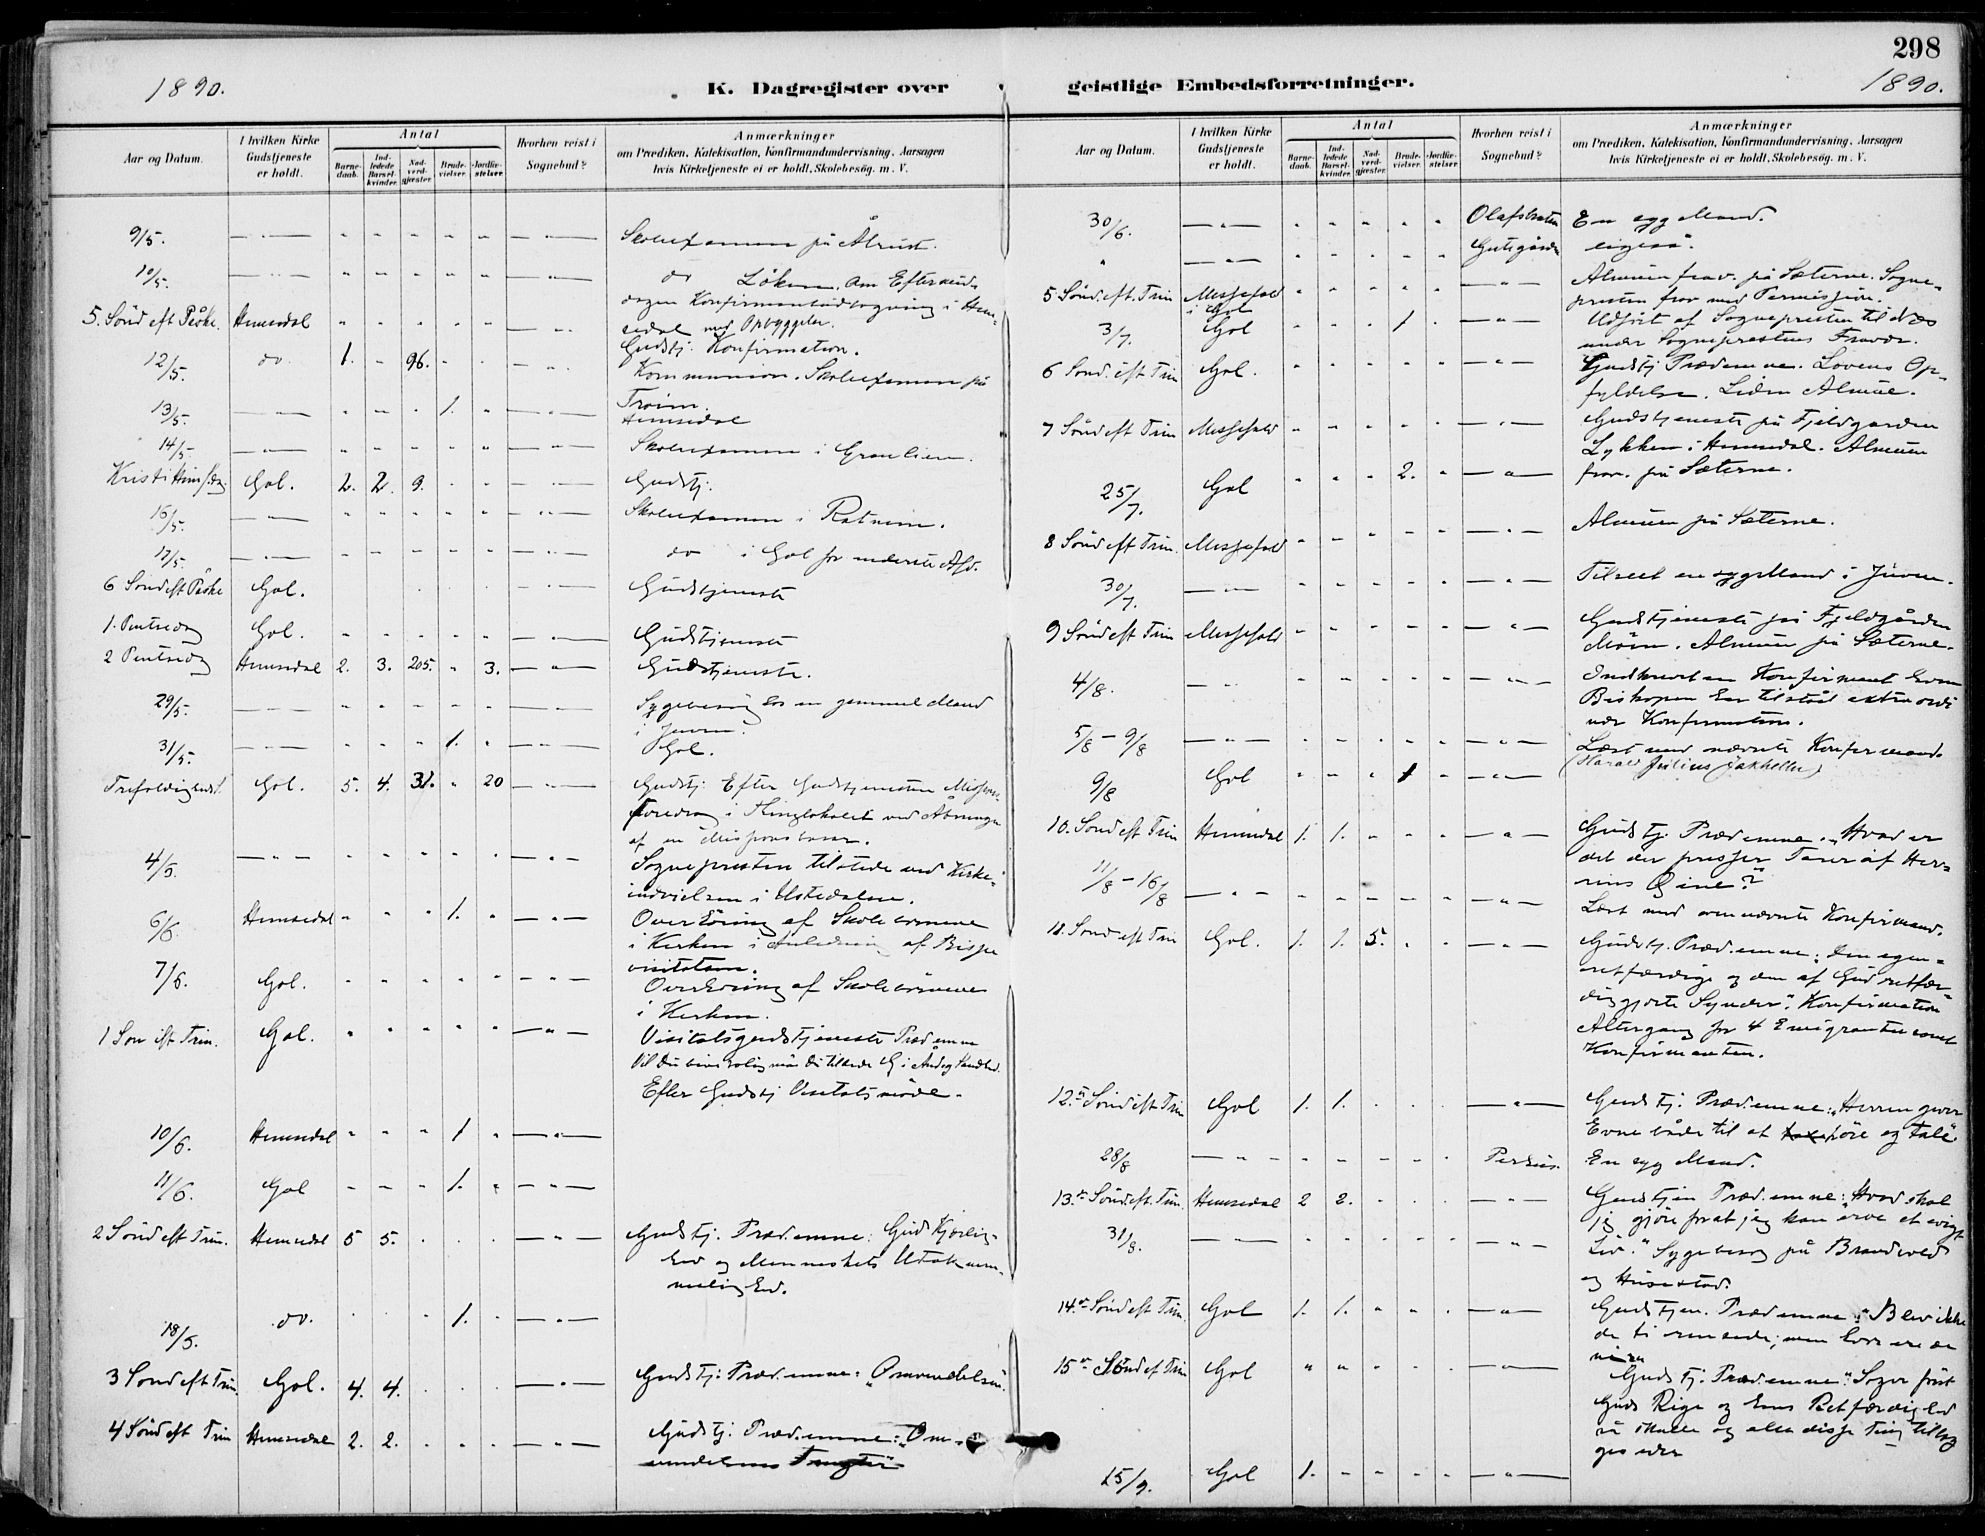 298
1890.
K. Dagregister over geistlige Embedsforretninger.
1890.
Aar og Datum.
I hvilken Kirke Gudstjeneste er holdt.
Antal
Barnedaab.
Indledede Barselkvinder.
Nadverdgjæster.
Brudevielser.
Jordfæstelser.
Hvorhen reist i Sognebud?
Anmærkninger
om Prædiken, Katekisation, Konfirmandundervisning, Aarsagen
hvis Kirketjeneste ei er holdt, Skolebesøg. m. V.
9/5. Skoleexamen på Ålrust.
10/5. do Löken. Om Eftermid-
dagen Konfirmantudsagning i Hem-
sedal med Opbyggelse.
5. Sönd eft Påske. Hemsedal Gudstj. Konfirmation.
12/5. do. 1. 96. Kommunion. Skoleexamen på
Troim.
13/5. 1. Hemsedal
14/5. Skoleexamen i Grønlien.
Kristi Himf.dag Gol. 2. 2. 9. Gudstj:
16/5. Skoleexamen i Rotneim.
17/5. do i Gol for nederste Afd.
6 Sönd eft Påske Gol. Gudstjeneste
1. Pintsedag Gol. Gudstjeneste
2 Pintsedag Hemsedal 2. 3. 205. 3. Gudstjeneste.
29/5. Sygebesøg hos en gammel Mand
i Juven.
31/5. 1. Gol.
Trefoldighedsf. Gol. 5. 4. 31. 20 Gudstj: Efter Gudstjenesten Missions-
foredrag i Thinglokalet ved Åbningen
af en Missionsbasar.
4/6. Sognepresten tilstede ved Kirke-
indvielsen i Ustedalen.
6/6. Hemsedal 1. Overhöring af Skolebörnene
i Kirken i Anledning af Bispe
visitatsen.
7/6. Gol. Overhöring af Skolebörnene
i Kirken.
1 Sön eft Trin. Gol. Visitatsgudstjeneste Præd.emne
Efter Gudstj Visitatsmöde.
10/6. Hemsedal 1
11/6. Gol 1.
2 Sönd eft Trin. Hemsedal 5 5. Gudstj. Præd.emne: Guds Kjærlig-
hed og Menneskets Utaknem-
melighed.
18/6. do. 1.
3 Sönd eft Trin. Gol. 4. 4. Gudstj: Præd.emne: "Omvendelsen.
4 Sönd eft Trin Hemsedal 2. 2. Gudstj: Præd.emne: "Om-
vendelsens Frugter"
Aar og Datum.
I hvilken Kirke Gudstjeneste er holdt.
Antal
Barnedaab.
Indledede Barselkvinder.
Nadverdgjæster.
Brudevielser.
Jordfæstelser.
Hvorhen reist i Sognebud?
Anmærkninger
om Prædiken, Katekisation, Konfirmandundervisning, Aarsagen
hvis Kirketjeneste ei er holdt, Skolebesøg. m. V.
30/6. Olafsbråten En syg Mand.
ligeså.
5 Sönd. eft. Trin Messefald i Gol Almuen frav. på Sæterne. Sogne-
presten frav med Permission.
3/7. Gol 1 Udfört af Sognepresten til Næs
under Sogneprestens Fravær.
6 Sönd. eft Trin Gol. Gudstj Præd.emne. Lovens Op-
fyldelse. Liden Almue.
7 Sönd eft Trin Messefald Gudstjeneste på Fjeldgården
Lykken i Hemsedal. Almuen
frav. på Sæterne.
25/7. Gol 2.
8 Sönd eft Trin. Messefald Almuen på Sæterne.
30/7. Tilseet en syg Mand i Juven.
9 Sönd eft Trin Messefald Gudstjeneste på Fjeldgården
Mörn. Almuen på Sæterne.
4/8. Indskrevet en Konfirmant hvem
Biskopen har tilståd extraordi
nær Konfirmation.
5/8 - 9/8 Læst med nævnte Konfirmand.
(Harald Julius Jakhelln)
9/8 Gol 1
10. Sönd eft Trin Hemsedal 1. 1. Gudstj. Præd.emne. "Hvad er
det der presser Tårer af Her-
rens Öine?"
11/8 - 16/8 Læst med ovennævnte Konfirmand.
11. Sönd eft Trin Gol. 1. 1. 5. Gudstj. Præd.emne: Den egen-
retfærdige og den af Gud retfær-
diggjorte Synder". Konfirmation
Altergang for 4 Emigranter samt
Konfirmanten.
12. Sönd eft Trin Gol 1. 1. Gudstj: Præd.emne: "Herren giver
Evne både til at höre og tale"
28/8 En syg Mand.
13. Sönd. eft. Trin. Hemsedal 2 2. Gudstjen Præd.emne: Hvad skal
jeg gjöre for at jeg kan arve et evigt
Liv."
31/8. Sygebesøg på Brandvold
og Husestad.
14. Sönd eft Trin. Gol 1. 1. Gudstjen. Præd.emne: "Blev ikke
de ti rensede; men hvor ere de
ni?"
15 Sönd eft Trin Gol Gudstj: Præd.emne: "Søger först
Guds Rige og hans Retfærdighed
så skulle og alle disse Ting tillæg
ges eder
15/9. Gol 1.